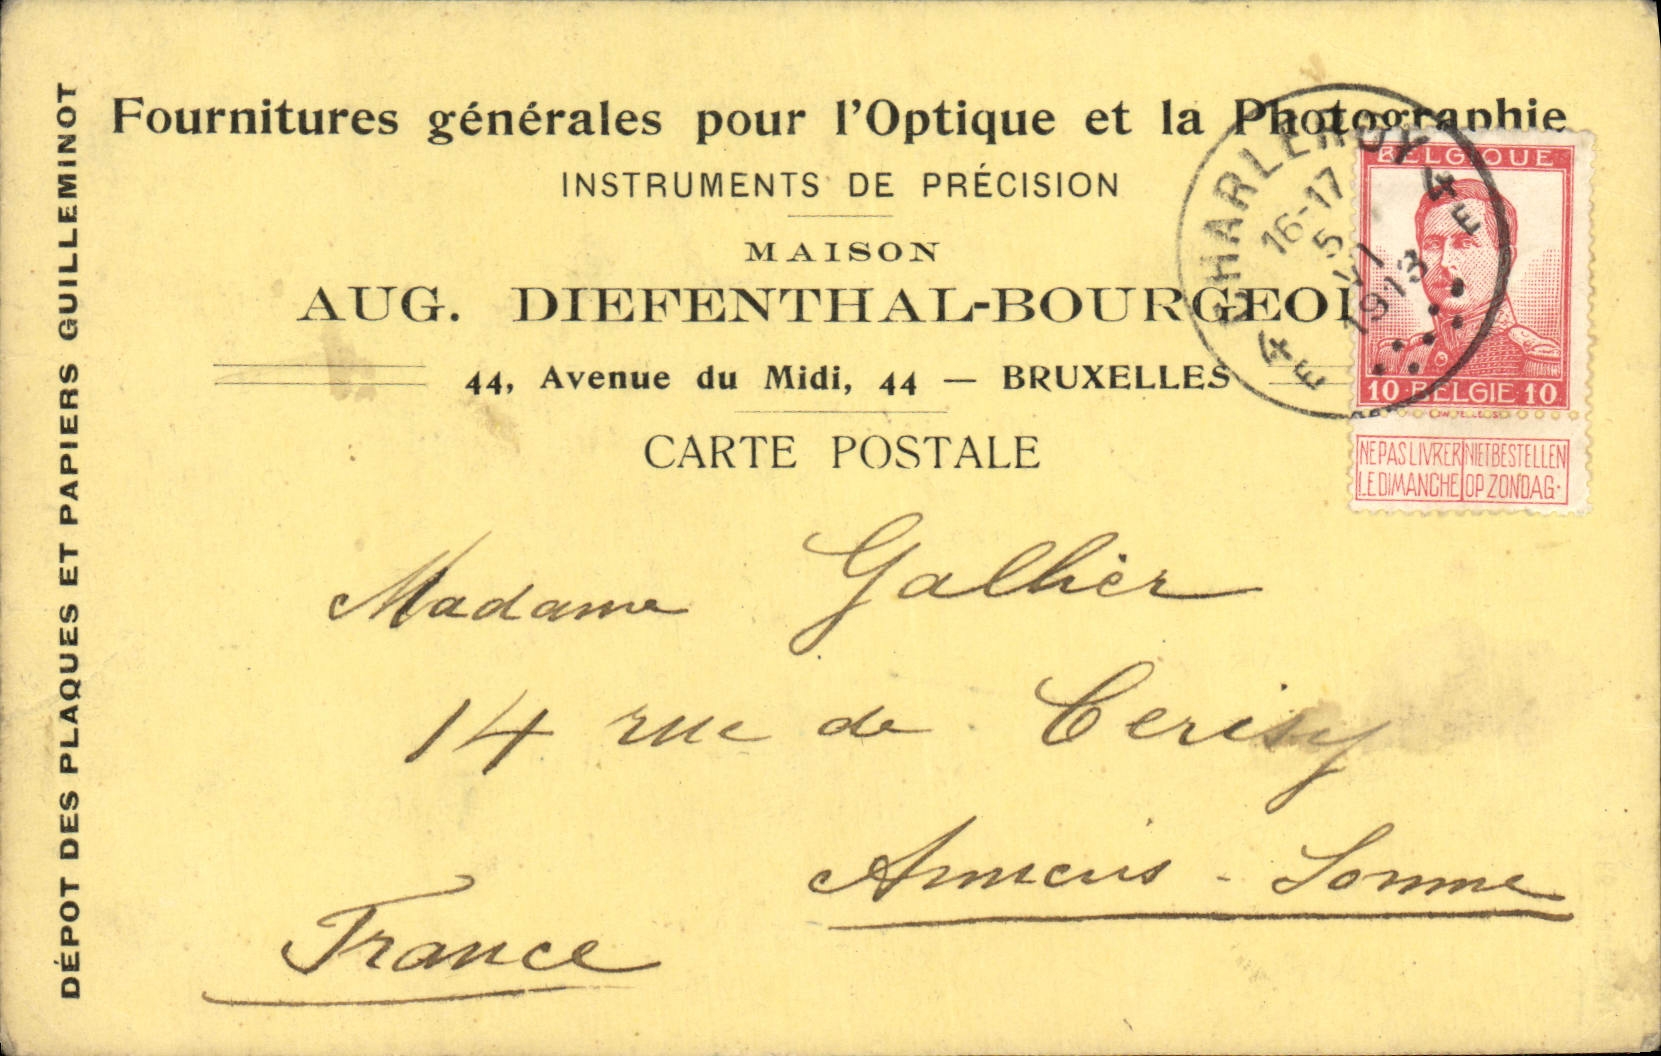 Fournitures générales pour l'Optique et la Photographie
INSTRUMENTS DE PRÉCISION
MAISON
AUG. DIEFENTHAL-BOURGEOI
44, Avenue du Midi, 44 — BRUXELLES
CARTE POSTALE
DÉPOT DES PLAQUES ET PAPIERS GUILLEMINOT
BELGIQUE
10 BELGIE 10
NE PAS LIVRER LE DIMANCHE
NIET BESTELLEN OP ZONDAG.
CHARLEROY
4 E
16-17
5
VI
1913
4 E
Madame Galhièr
14 rue de Cerisy
Amiens - Somme
France